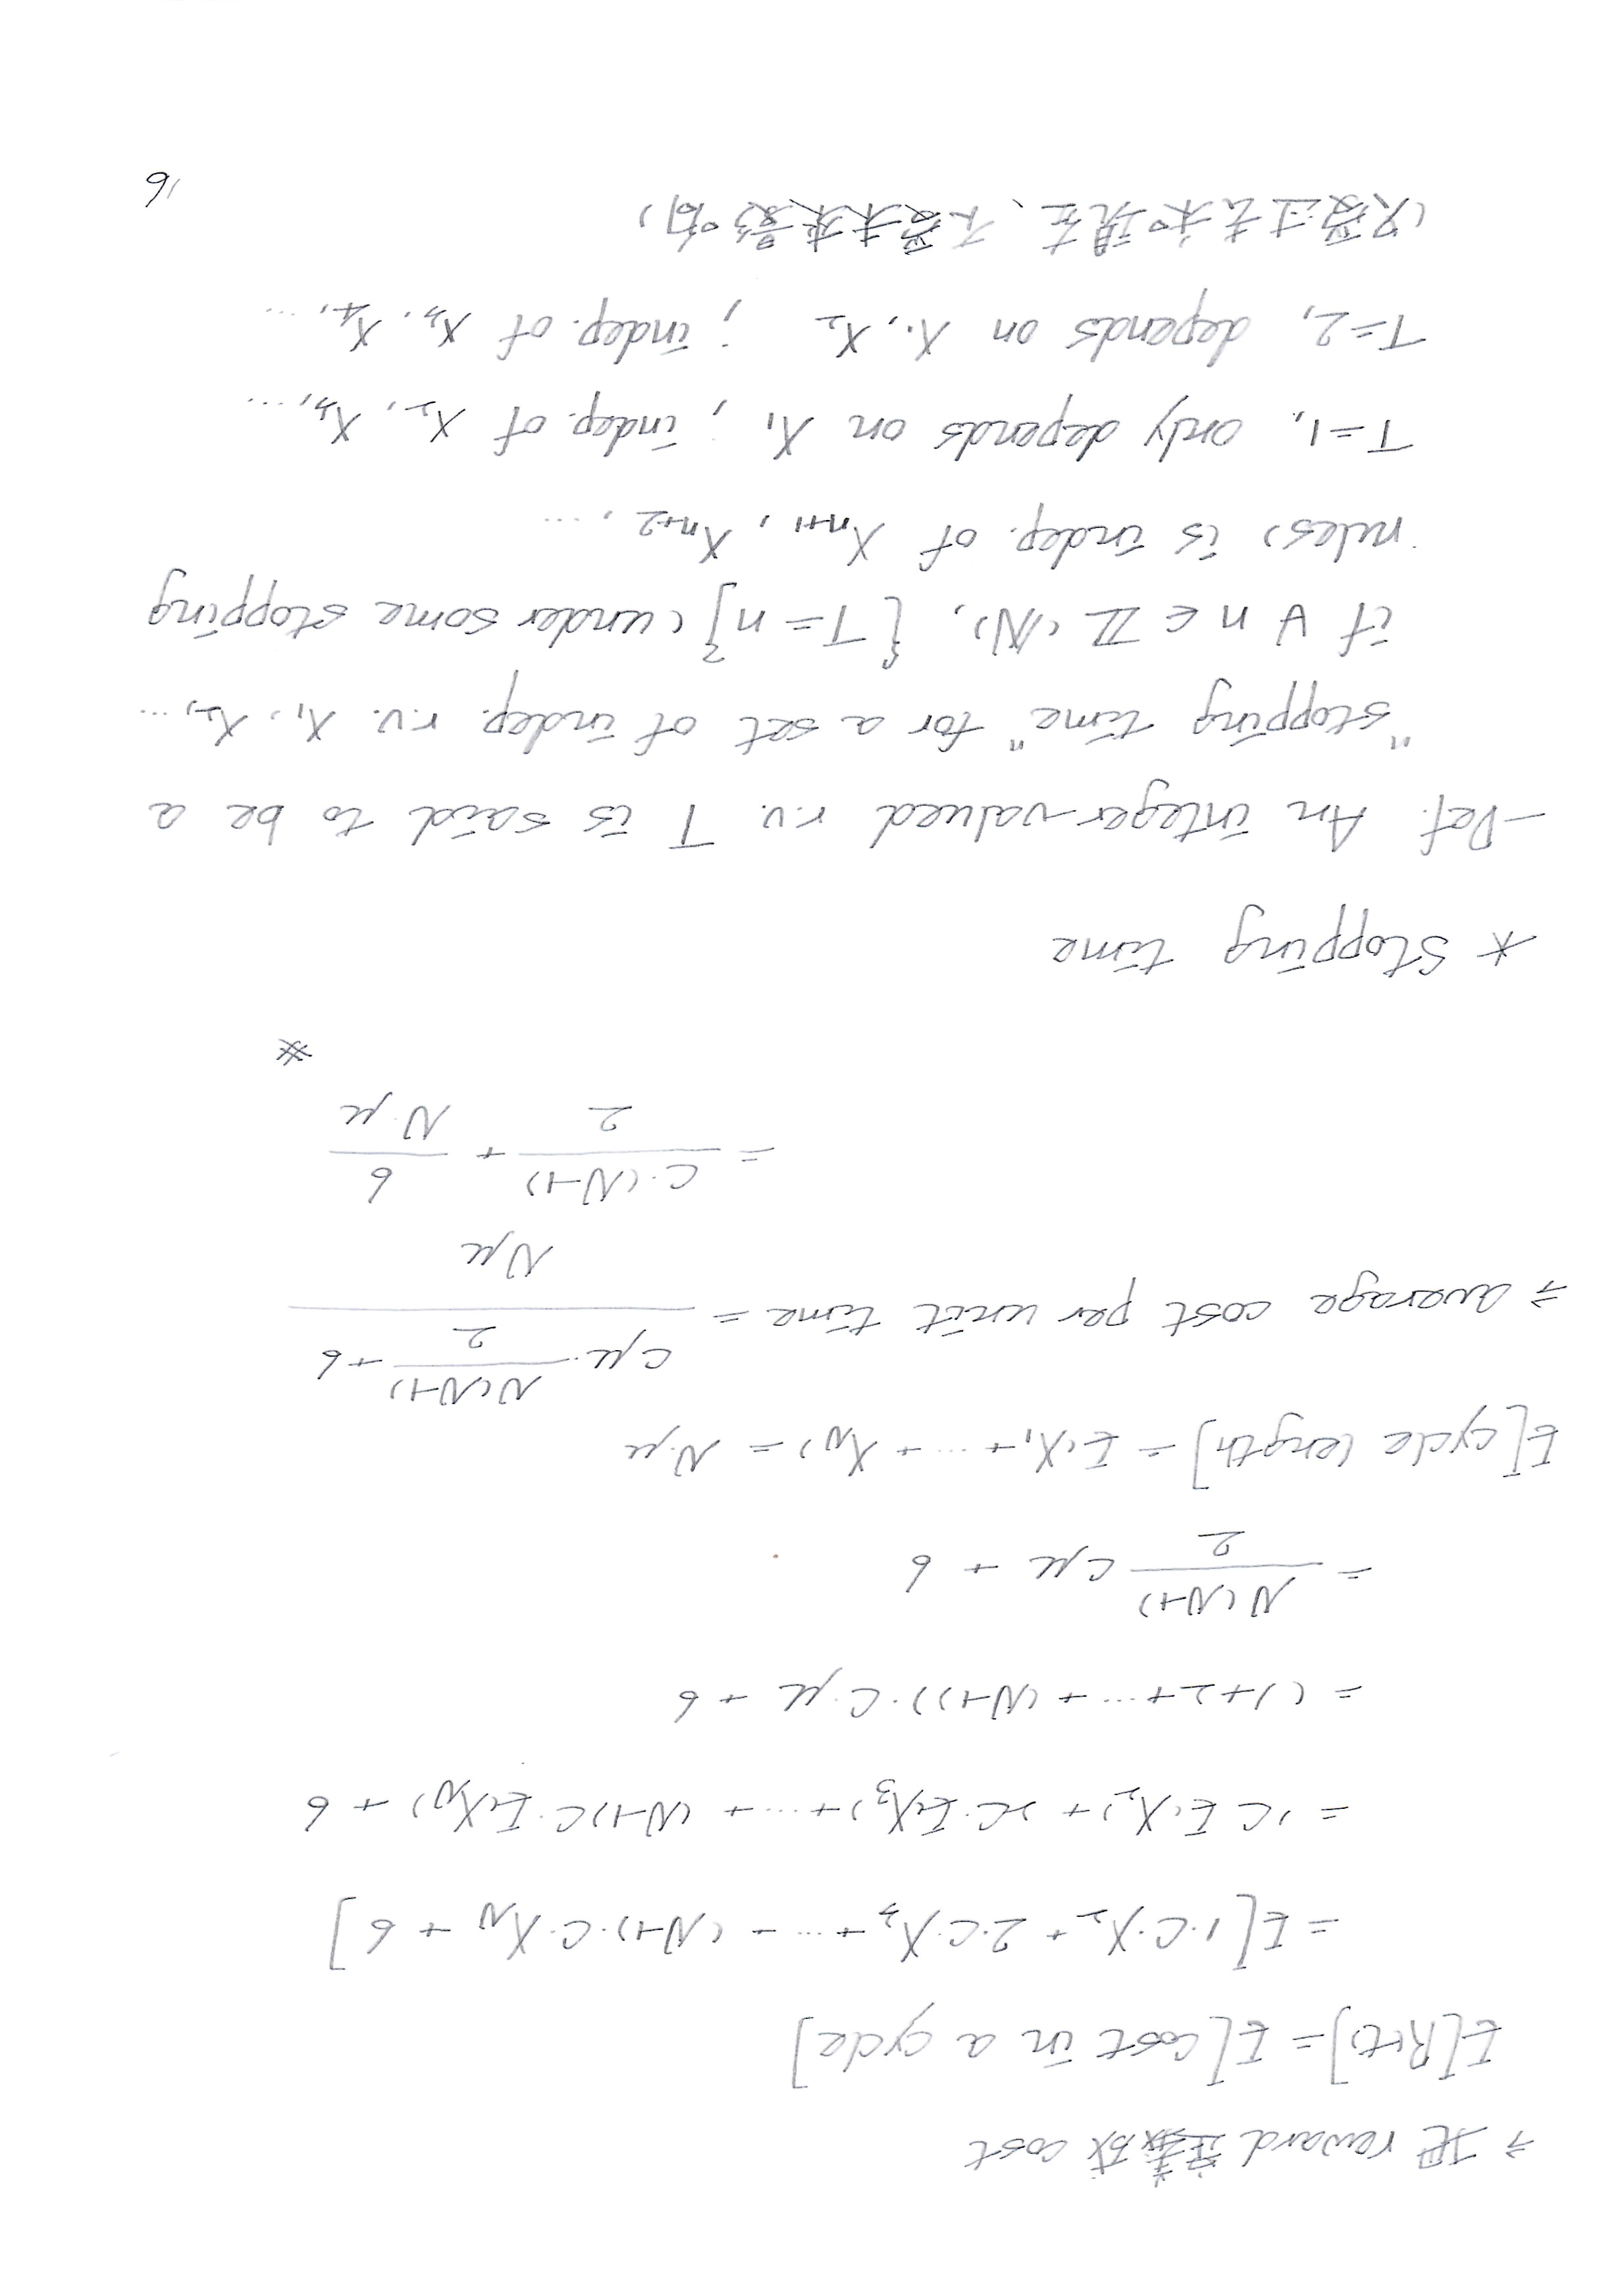 ⇒ 把 reward 定義成 cost
E[R(t)] = E[cost in a cycle]
= E[1·C·X₂ + 2·C·X₃ + ⋯ + (N-1)·C·X_N + 6]
= 1C E(X₂) + 2C·E(X₃) + ⋯ + (N-1)C·E(X_N) + 6
= (1+2+⋯+(N-1))·C·μ + 6
= N(N-1)/2 Cμ + 6
E[cycle length] = E(X₁ + ⋯ + X_N) = N·μ
⇒ average cost per unit time = (Cμ·N(N-1)/2 + 6) / Nμ
= C·(N-1)/2 + 6/N·μ
※
* Stopping time
-Def. An integer-valued r.v. T is said to be a
"stopping time" for a set of indep. r.v. X₁, X₂, …
if ∀ n ∈ ℤ (ℕ), {T=n} (under some stopping
rules) is indep. of X_{n+1}, X_{n+2}, …
T=1, only depends on X₁ ; indep. of X₂, X₃, …
T=2, depends on X₁, X₂ ; indep. of X₃, X₄, …
(只受过去和現在、不受未來影响)
16